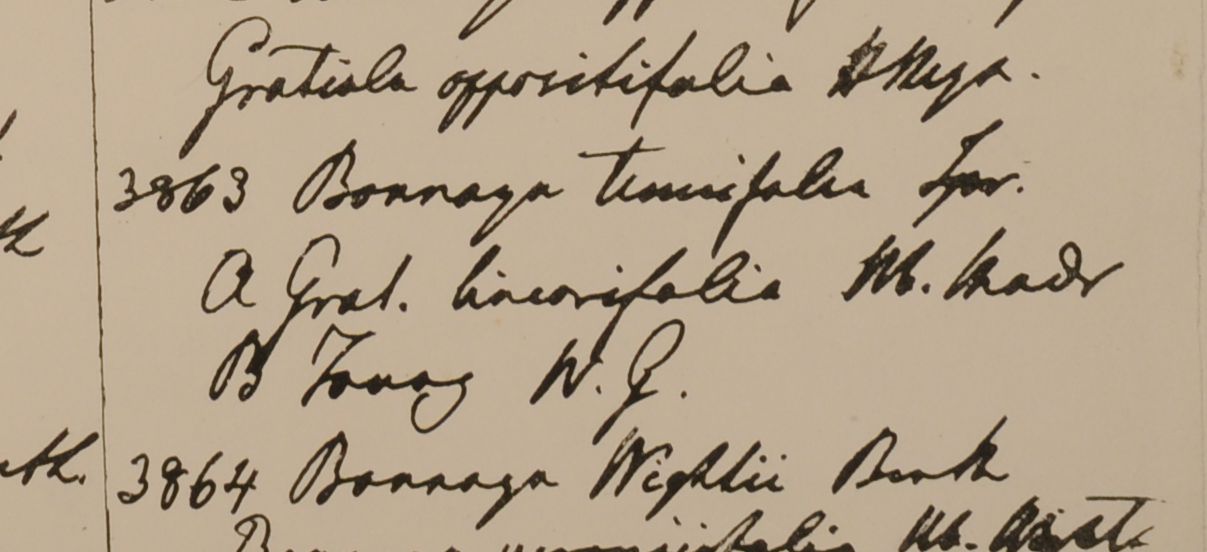 Gratiola oppositifolia
3863 Bonnaya tenuifolia Spr.
A Grat. linearifolia Hb. Madr
B Tavoy W. G.
3864 Bonnaya Wightii Benth
Hb. Wight.